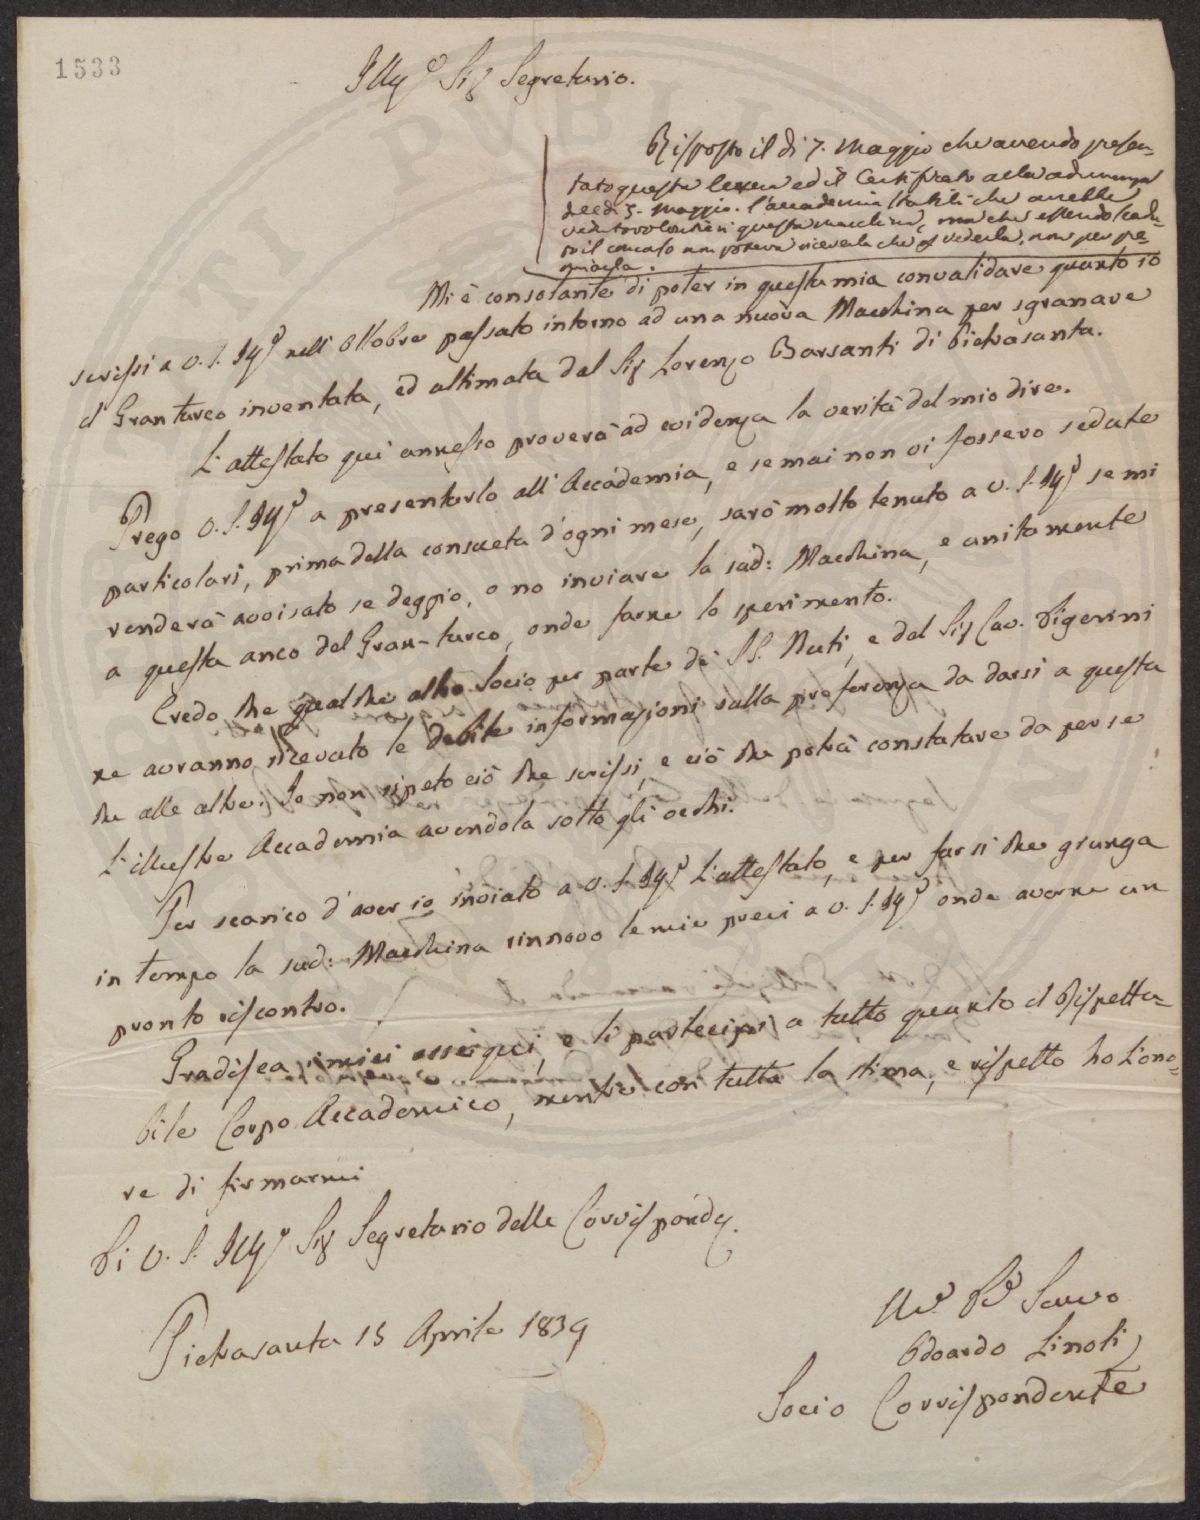 1533
Illmo Sig Segretario.
Risposto il dì 7. Maggio che avendo presen-
tato questa lettera ed il Certificato alla adunanza
del dì 5. Maggio. l'accademia stabilì che avrebbe
veduto volentieri questa macchina, ma che essendo scadu-
to il concorso non poteva riceverla che p vederla, non per pre-
miarla.
Mi è consolante di poter in questa mia convalidare quanto io
scrissi a V. S. Illma nell'Ottobre passato intorno ad una nuova Macchina per sgranare
il Gran turco inventata, ed ultimata dal Sig Lorenzo Barsanti di Pietrasanta.
L'attestato quì annesso proverà ad evidenza la verità del mio dire.
Prego V. S. Illma a presentarlo all'Accademia, e se mai non vi fossero sedute
particolari, prima della consueta d'ogni mese, sarò molto tenuto a V. S. Illma se mi
renderà avvisato se deggio, o no inviare la sud: Macchina, e unitamente
a questa anco del Gran-turco, onde farne lo sperimento.
Credo che qualche altro Socio per parte de' SS. Nuti, e del Sig Cav. Digerini
ne avranno ricevuto le debite informazioni sulla preferenza da darsi a questa
che alle altre. Io non ripeto ciò che scrissi, e ciò che potrà constatare da per se
L'illustre Accademia avendola sotto gli occhi.
Per scarico d'aver io inviato a V. S. Illma L'attestato, e per far sì che giunga
in tempo la sud: Macchina rinnovo le mie preci a V. S. Illma onde averne un
pronto riscontro.
Gradisca i miei ossequi, e li partecipi a tutto quanto il Rispetta-
bile Corpo Accademico, mentre con tutta la stima, e rispetto ho L'ono-
re di firmarmi
Di V. S. Illma Sig Segretario delle Corrispondz.
Pietrasanta 15 Aprile 1839
Umo Devo Servo
Odoardo Linoli
Socio Corrispondente